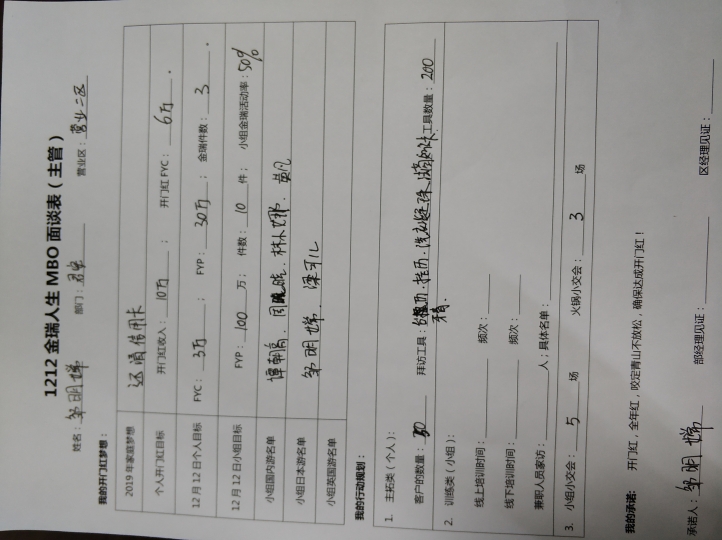 1212 金瑞人生 MBO 面谈表（主管）
姓名：邹明婵 部门： 营业区：营业二区
我的开门红梦想：
2019 年家庭梦想 还清信用卡
个人开门红目标 开门红收入：10万； 开门红 FYC：6万.
12 月 12 日个人目标 FYC：3万； FYP：30万； 金瑞件数：3.
12 月 12 日小组目标 FYP：100万； 件数：10件； 小组金瑞活动率：50%
小组国内游名单 林小娜.
小组日本游名单 邹明婵.
小组英国游名单
我的行动规划：
1. 主拓类（个人）：
客户的数量：30 拜访工具：台历.挂历. 工具数量：200
2. 训练类（小组）：
线上培训时间： 频次：
线下培训时间： 频次：
兼职人员家访： 人；具体名单：
3. 小组小交会：5 场 火锅小交会：3 场
我的承诺： 开门红，全年红，咬定青山不放松，确保达成开门红！
承诺人：邹明婵 部经理见证： 区经理见证：